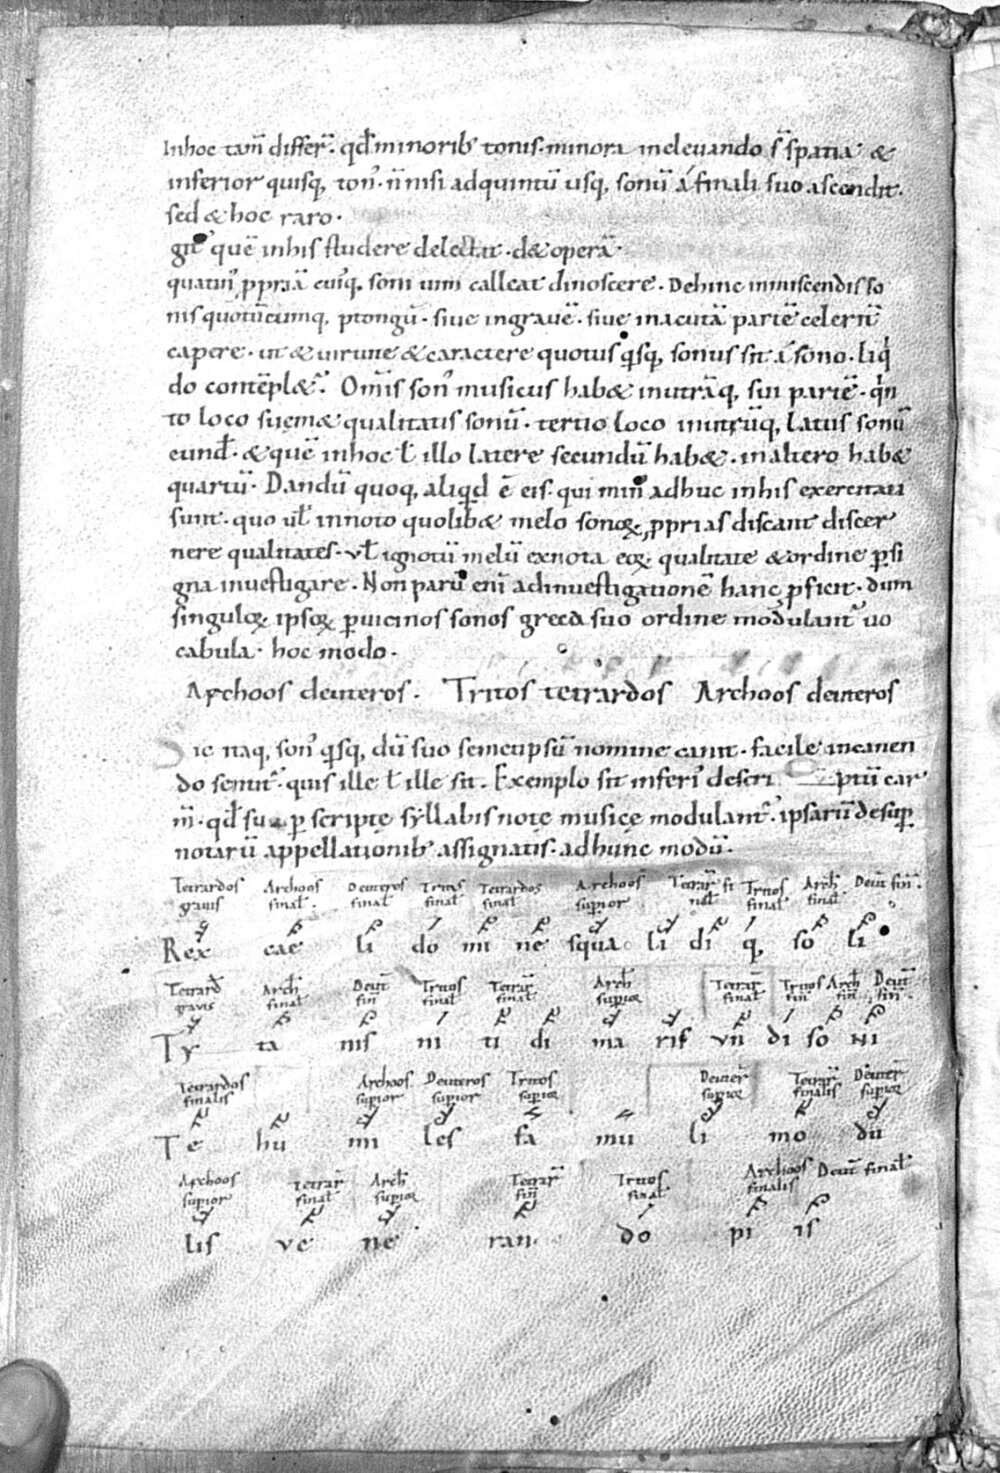 Inhoc tam̄ differt̄. qđ minorib' tonis. minora inelevando s̄ spatia &
inferior quisq, ton' n̄ nisi adquintū usq, sonū á finali suo ascendit.
sed & hoc raro.
git' quē inhis studere delectat. d& operā
quatin' ppriā cui'q, soni uim calleat dinoscere. Dehinc inmiscendis so
nis quotūcumq, ptongū. sive ingravē. sive inacutā partē celerit̄
capere. ut & uirtute & caractere quotus qisq, sonus sit á sono. liq
do contēpl&'. Om̄is son' musicus hab& inutrāq, sui partē. qin
to loco suem& qualitatis sonū. tertio loco inutrūq, latus sonū
eund̄. & quē inhoc ł illo latere secundū hab&. inaltero hab&
quartū. Dandū quoq, aliqd ē eis. qui min' adhuc inhis exercitati
sunt. quo uł innoto quolib& melo sonoꝝ pprias discant discer
nere qualitates. uł ignotū melū exnota eoꝝ qualitate & ordine psi
gna investigare. Non parū enī adinvestigationē hanc pficit. dum
singuloꝝ ipsoꝝ puicinos sonos greca suo ordine modulant' uo
cabula. hoc modo.
Archoos deuteros. Tritos tetrardos Archoos deuteros
Sic itaq, son' qisq, dū suo semetipsū nomine canit. facile incanen
do sentit'. quis ille ł ille sit. Exemplo sit inferi' descri ptū car
m̄. qđ sup scripte syllabis note musice modulant'. ipsarū desup
notarū appellationib' assignatis. adhunc modū.
Tetrardos Archoos Deuteros Tritos Tetrardos Archoos Tetrar̄ fi Tritos Arch̄ Deut̄ fin̄.
gravis finał. finał finał finał supior nał finał finał
Rex cae li do mi ne squa li di q, so li
Tetrard̄ Arch̄ Deut̄ Tritos Tetrar̄ Arch̄ Tetrar̄ Tritos Arch̄ Deut̄
gravis finał fin̄ finał finał supior finał fin̄ fin̄ fin̄
Ty ta nis ni ti di ma rif vn di so NI
Tetrardos Archoos Deuteros Tritos Deuter̄ Tetrar̄ Deuter̄
finalis supior supior supior supior finalis supior
Te hu mi les fa mu li mo du
Archoos Tetrar̄ Arch̄ Tetrar̄ Tritos Archoos Deut̄ finał
supior finał supior fin̄ finał finalis
lis ve ne ran do pi is